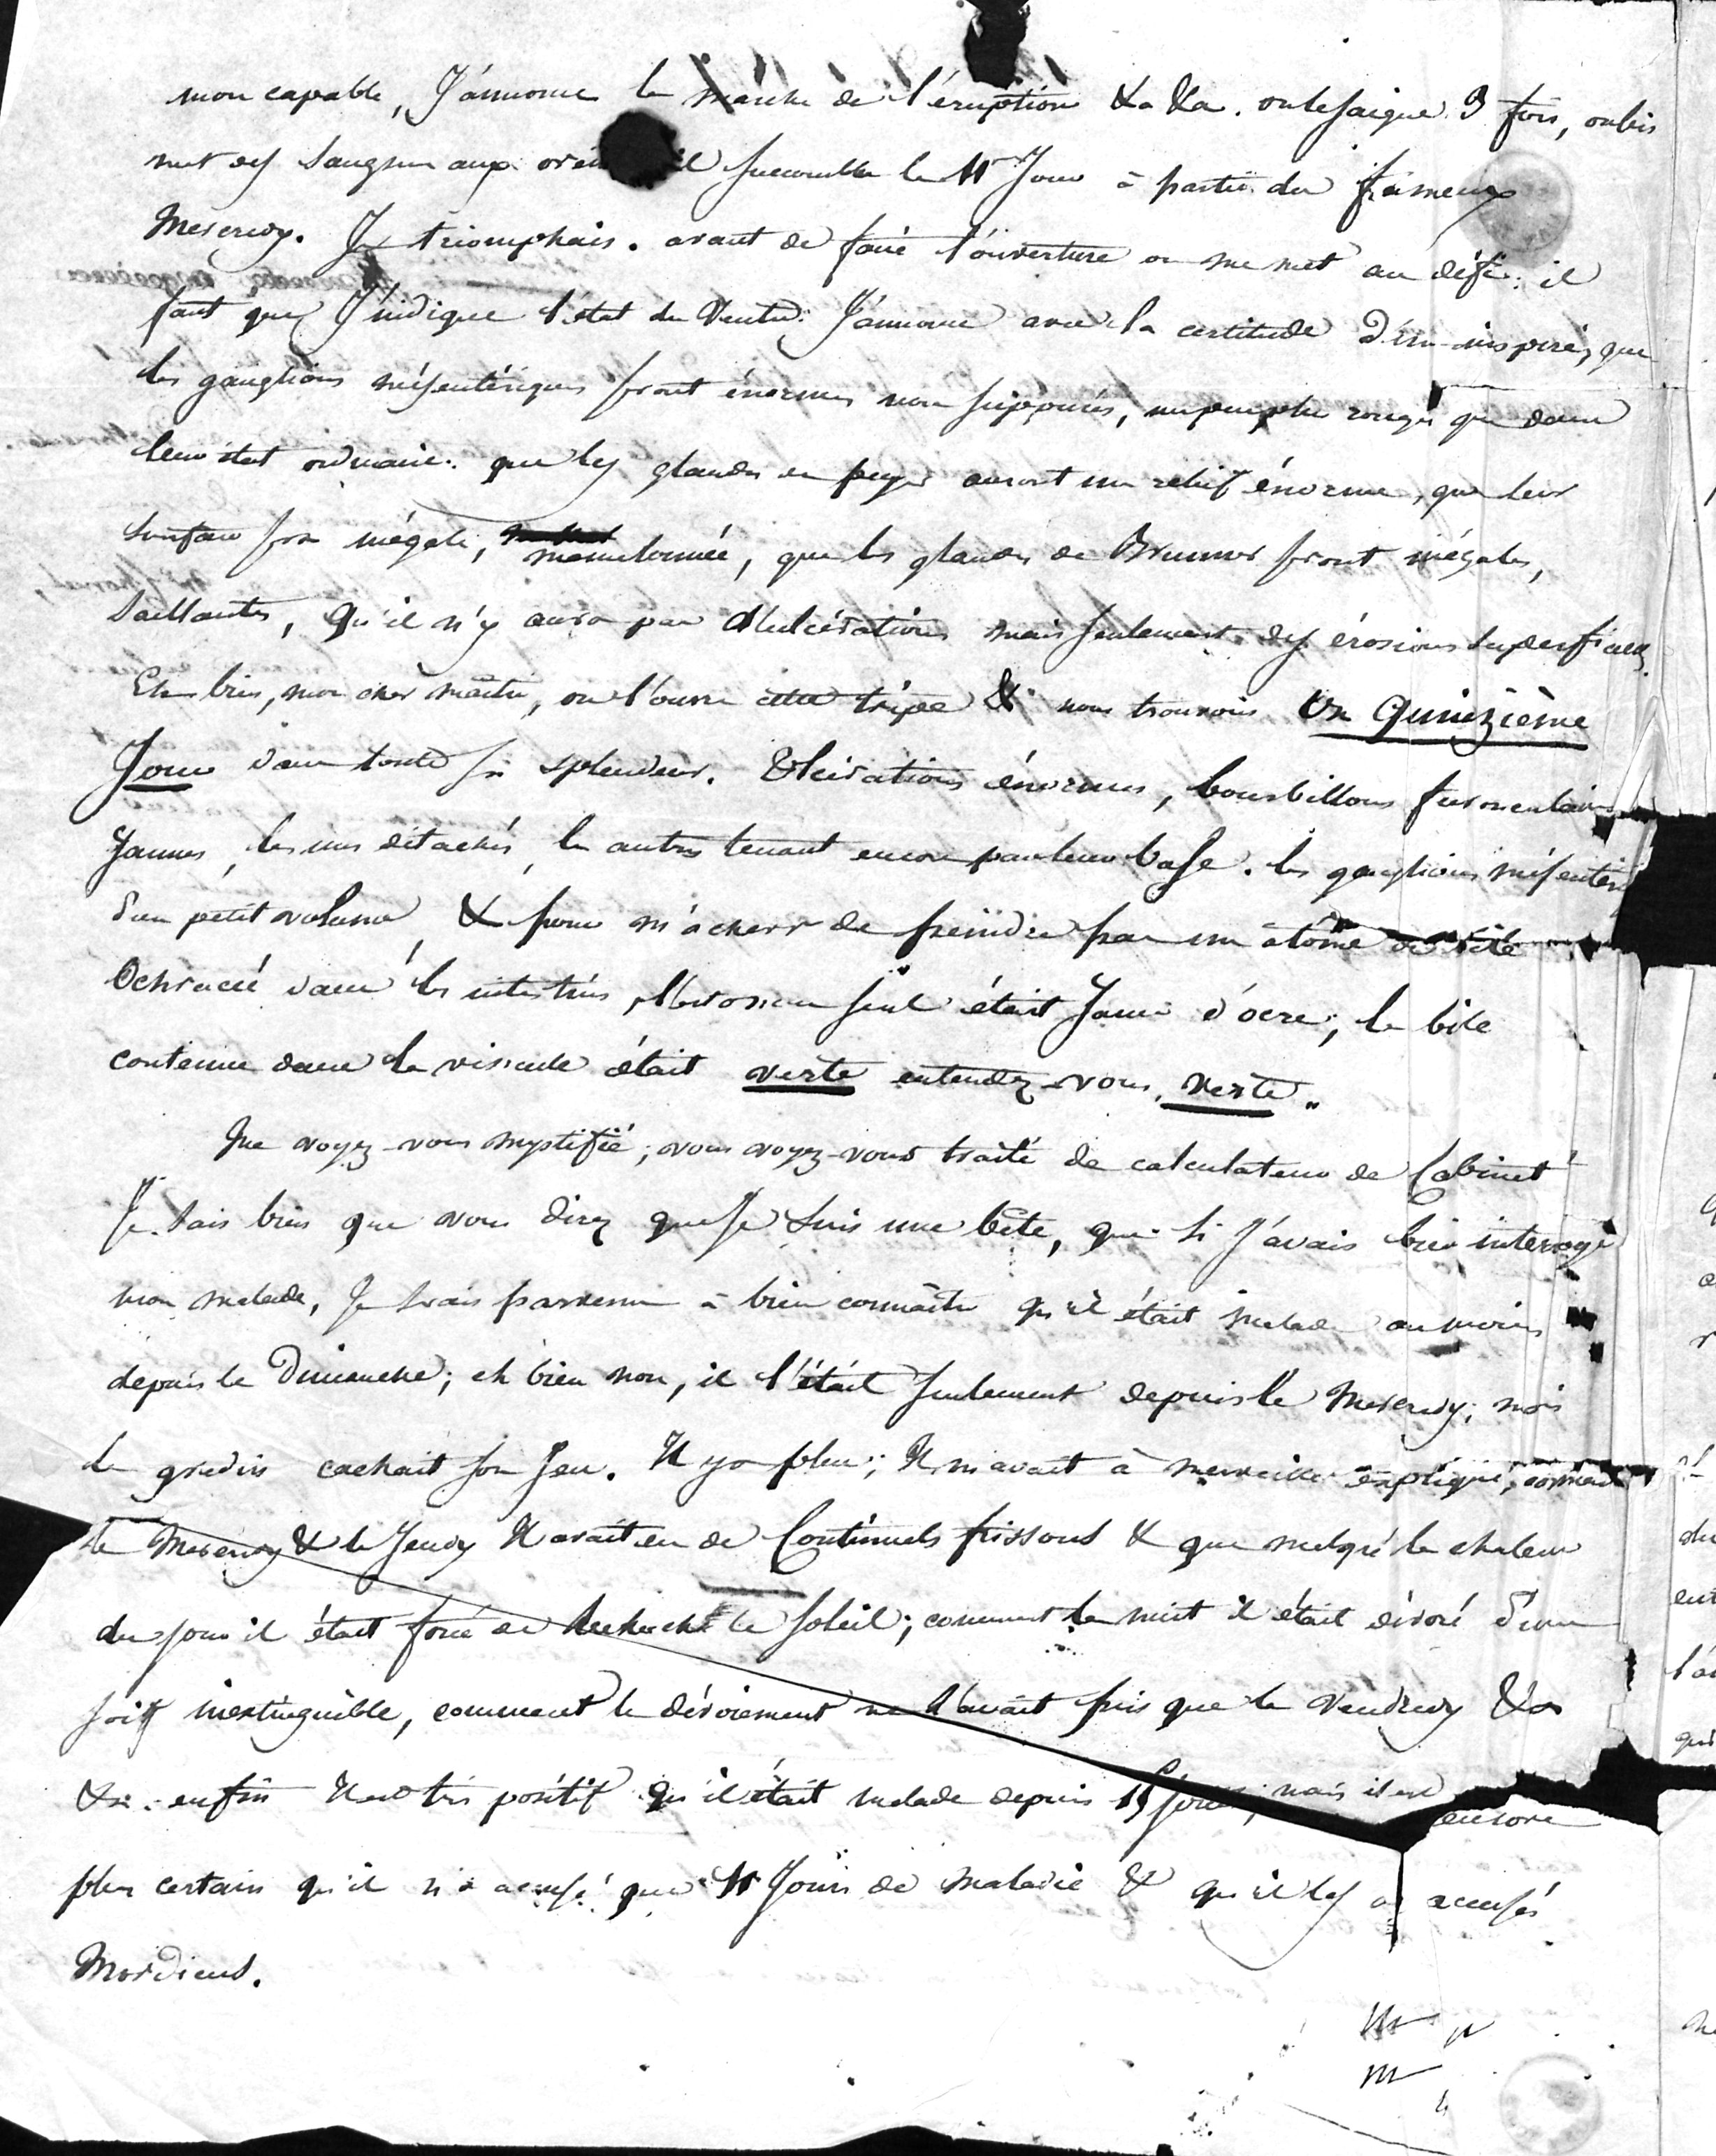 mon capable, J'annonce la marche de l'éruption &a &a. on le saigne 3 fois, on lui
met des sangsues aux oreil il succombe le 11e Jour à partir du fameux
Mercredy. Je triomphais. avant de faire l'ouverture on me met au défi; il
faut que J'indique l'état du Ventre: J'annonce avec la certitude d'un inspiré, que
les ganglions mésentériques seront énormes non suppurés, un peu plus rouges que dans
leur état ordinaire: que les glandes de peyer auront un relief énorme, que leur
surface sera inégale, mamelonnée, que les glandes de Brunner seront inégales,
saillantes, qu'il n'y aura pas d'ulcérations mais seulement des érosions superficielles.
Eh bien, mon cher maître, on l'ouvre cette tripe & nous trouvons Un Quinzième
Jour dans toute sa splendeur. Ulcérations énormes, bourbillons furonculaires
Jaunes, les uns détachés, les autres tenant encore par leur base. les ganglions mésentériq
d'un petit volume, & pour m'achever de peindre pas un atôme de bile
Ochracée dans les intestins, l'estomac seul était Jaune d'ocre; la bile
contenue dans la vésicule était verte entendez-vous, verte.
Me voyez-vous mystifié; vous voyez-vous traité de calculateur de Cabinet
Je sais bien que vous direz que Je suis une bête, que si J'avais bien interrogé
mon malade, Je serais parvenu à bien connaître qu'il était malade au moins
depuis le Dimanche; eh bien non, il l'était seulement depuis le Mercredy; mais
le gredin cachait son Jeu. Il y a plus; Il m'avait à merveille expliqué, comment
le Mercredy & le Jeudy Il avait eu de Continuels frissons & que malgré la chaleur
du jour il était forcé de rechercher le soleil; comment la nuit il était dévoré d'une
soif inextinguible, comment le dévoiement ne l'avait pris que le Vendredy &a
&a. enfin Il est très positif qu'il était malade depuis 15 jours; mais il est encore
plus certain qu'il n'a accusé que 11 Jours de maladie & qu'il les a accusés
Mordicus.